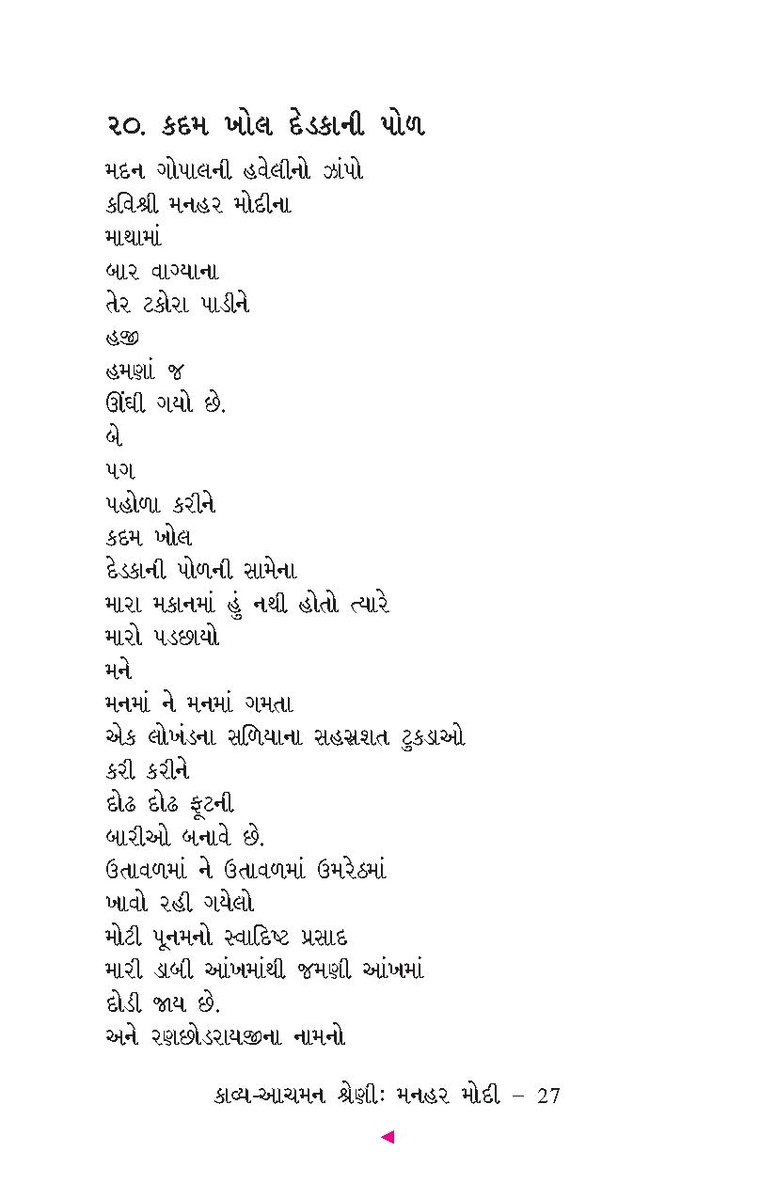 ૨૦. કદમ ખોલ દેડકાની પોળ
મદન ગોપાલની હવેલીનો ઝાંપો
કવિશ્રી મનહર મોદીના
માથામાં
બાર વાગ્યાના
તેર ટકોરા પાડીને
હજી
હમણાં જ
ઊંઘી ગયો છે.
બે
પગ
પહોળા કરીને
કદમ ખોલ
દેડકાની પોળની સામેના
મારા મકાનમાં હું નથી હોતો ત્યારે
મારો પડછાયો
મને
મનમાં ને મનમાં ગમતા
એક લોખંડના સળિયાના સહસ્રશત ટુકડાઓ
કરી કરીને
દોઢ દોઢ ફૂટની
બારીઓ બનાવે છે.
ઉતાવળમાં ને ઉતાવળમાં ઉમરેઠમાં
ખાવો રહી ગયેલો
મોટી પૂનમનો સ્વાદિષ્ટ પ્રસાદ
મારી ડાબી આંખમાંથી જમણી આંખમાં
દોડી જાય છે.
અને રણછોડરાયજીના નામનો
કાવ્ય-આચમન શ્રેણીઃ મનહર મોદી – 27